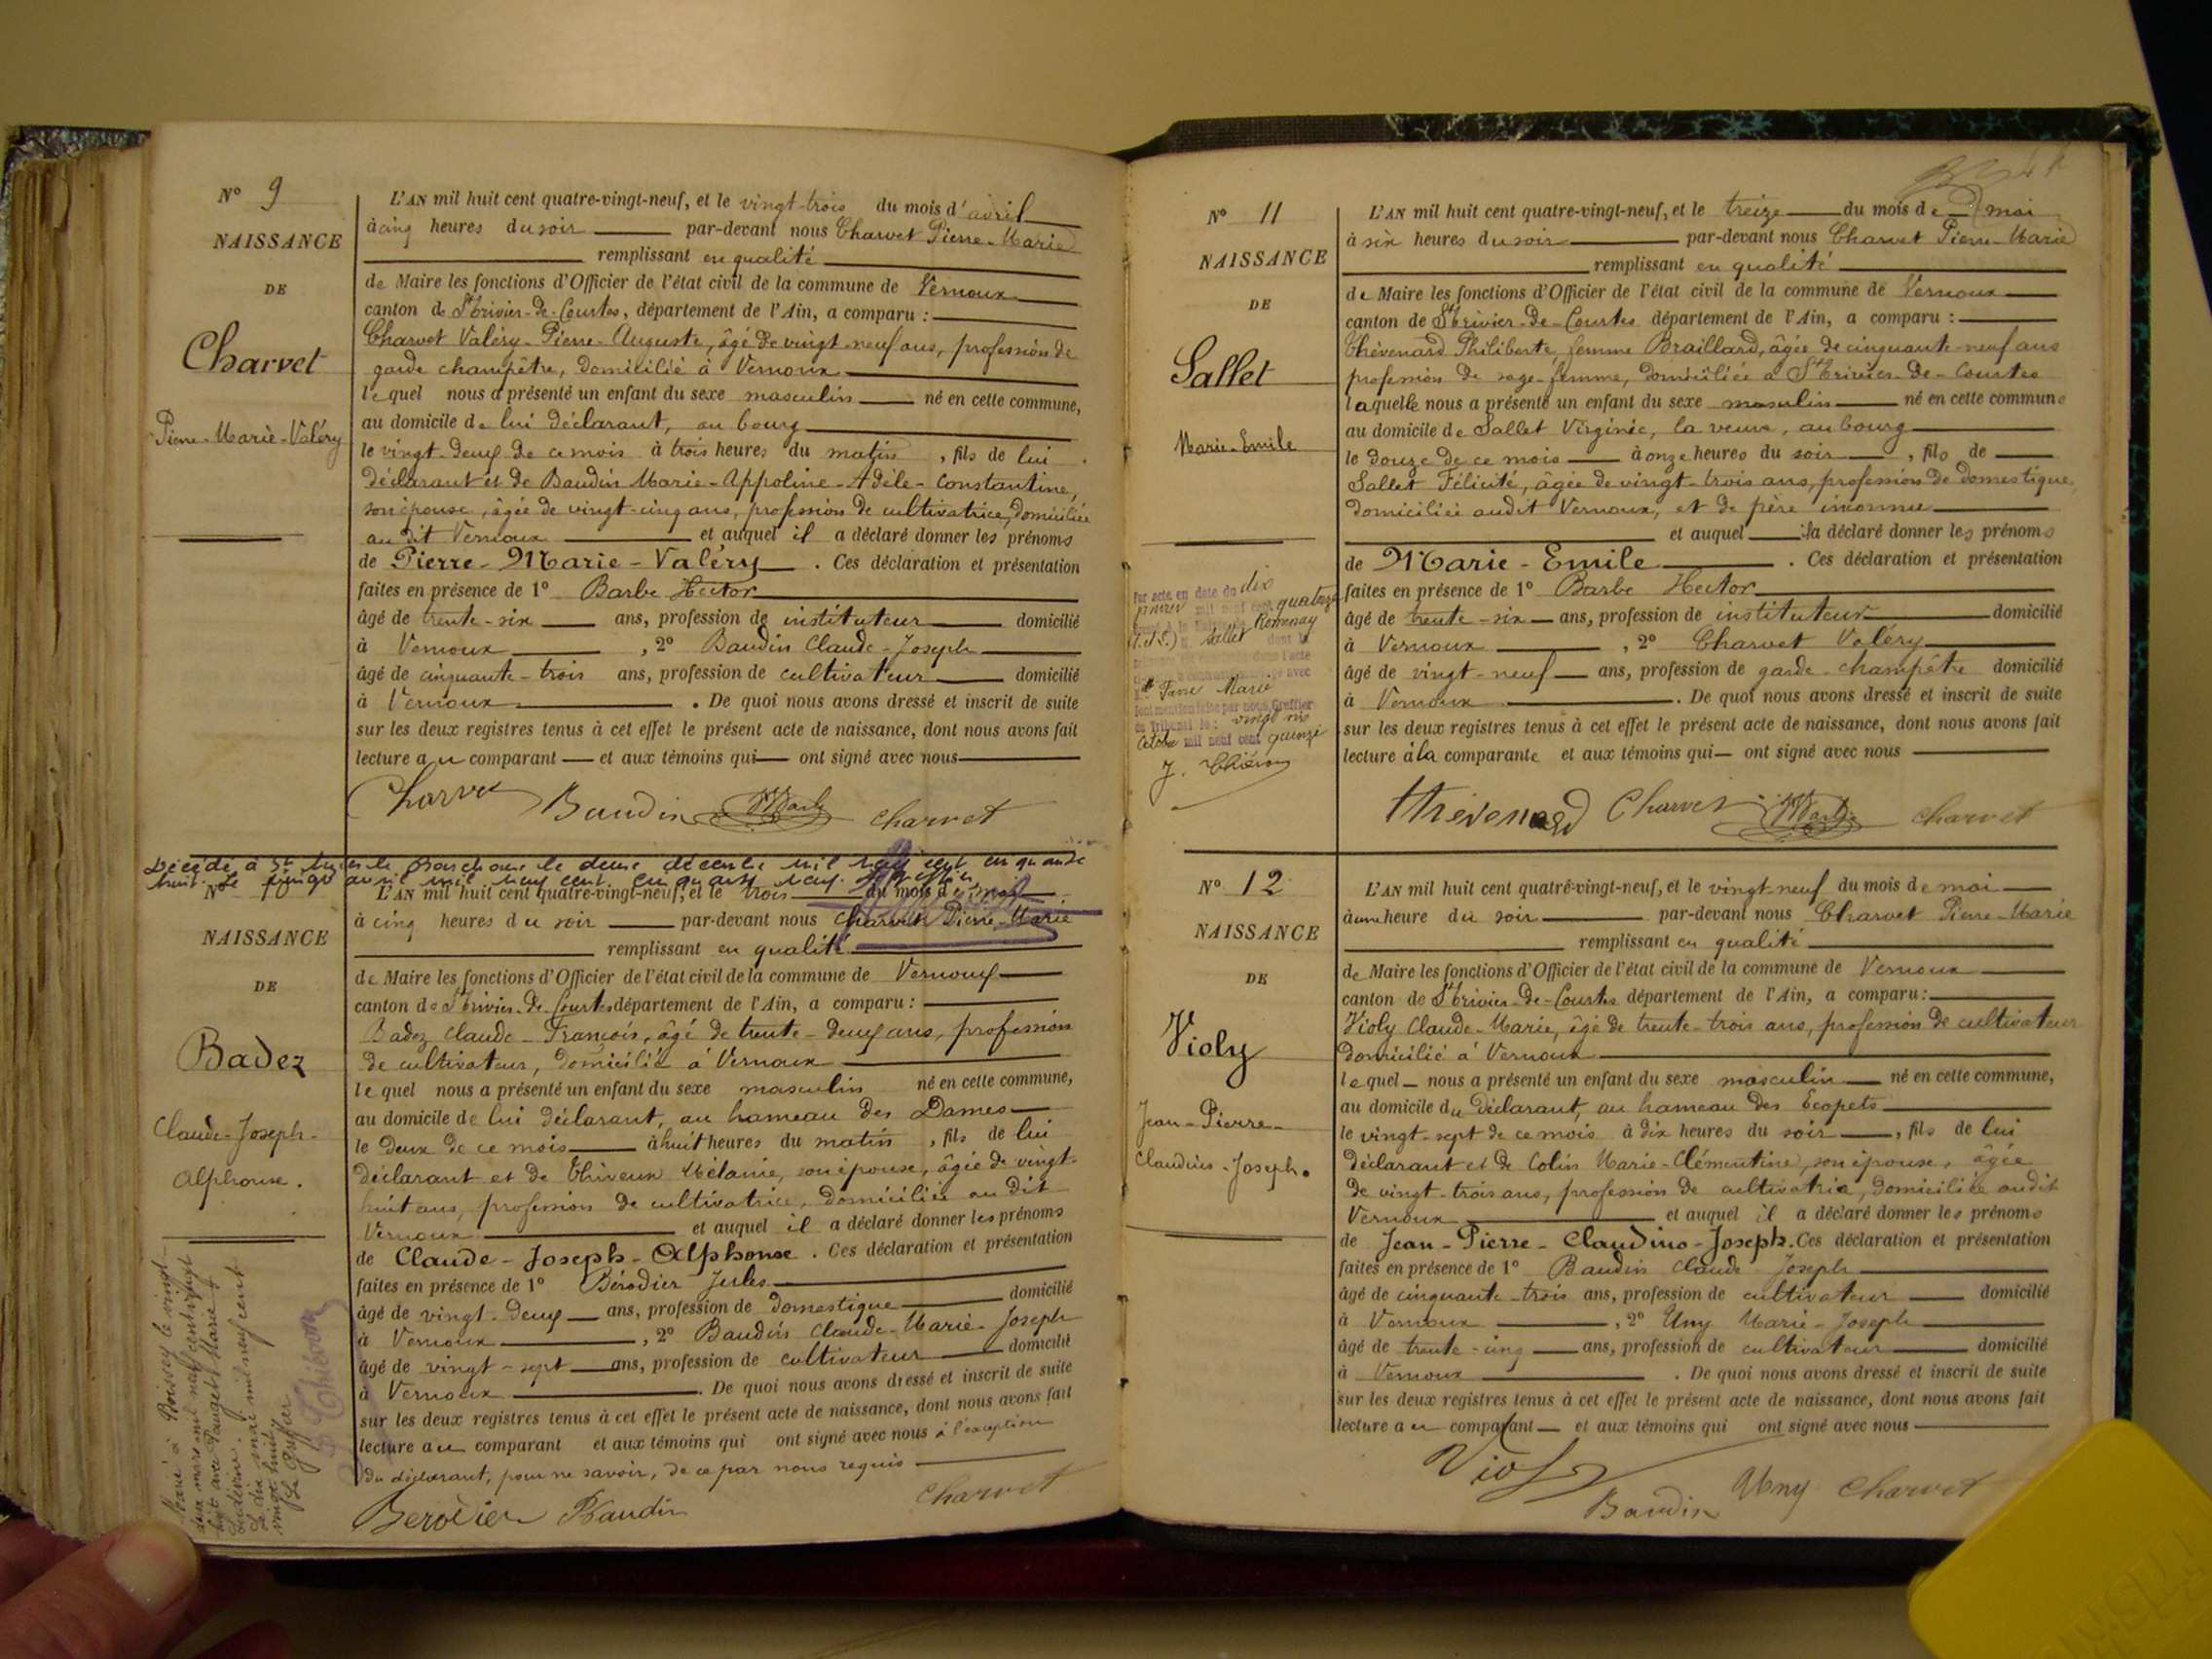 N° 9
NAISSANCE
DE
Charvet
Pierre-Marie-Valéry
L'AN mil huit cent quatre-vingt-neuf, et le vingt-trois du mois d'avril
à cinq heures du soir par-devant nous Charvet Pierre-Marie
remplissant en qualité
de Maire les fonctions d'Officier de l'état civil de la commune de Vernoux
canton de St Trivier-de-Courtes, département de l'Ain, a comparu :
Charvet Valéry-Pierre-Auguste, âgé de vingt-neuf ans, profession de
garde champêtre, domicilié à Vernoux
lequel nous a présenté un enfant du sexe masculin né en cette commune,
au domicile de lui déclarant, au bourg
le vingt-deux de ce mois à trois heures du matin, fils de lui
déclarant et de Baudin Marie-Appoline-Adèle-Constantine,
son épouse, âgée de vingt-cinq ans, profession de cultivatrice, domiciliée
au dit Vernoux et auquel il a déclaré donner les prénoms
de Pierre-Marie-Valéry. Ces déclaration et présentation
faites en présence de 1° Barbe Hector
âgé de trente-six ans, profession de instituteur domicilié
à Vernoux, 2° Baudin Claude-Joseph
âgé de cinquante-trois ans, profession de cultivateur domicilié
à Vernoux. De quoi nous avons dressé et inscrit de suite
sur les deux registres tenus à cet effet le présent acte de naissance, dont nous avons fait
lecture au comparant et aux témoins qui ont signé avec nous
Charvet Baudin HBarbe Charvet
Décédé à St le deux décembre mil neuf cent cinquante
huit. Le avril mil neuf cent cinquante neuf.
N°
NAISSANCE
DE
Badez
Claude-Joseph-
Alphonse.
L'AN mil huit cent quatre-vingt-neuf, et le trois du mois de mai
à cinq heures du soir par-devant nous Charvet Pierre-Marie
remplissant en qualité
de Maire les fonctions d'Officier de l'état civil de la commune de Vernoux
canton de St Trivier-de-Courtes département de l'Ain, a comparu :
Badez Claude-François, âgé de trente-deux ans, profession
de cultivateur, domicilié à Vernoux
lequel nous a présenté un enfant du sexe masculin né en cette commune,
au domicile de lui déclarant, au hameau des Dames
le deux de ce mois à huit heures du matin, fils de lui
déclarant et de Mélanie, son épouse, âgée de vingt-
huit ans, profession de cultivatrice, domiciliée au dit
Vernoux et auquel il a déclaré donner les prénoms
de Claude-Joseph-Alphonse. Ces déclaration et présentation
faites en présence de 1° Bérodier Jules
âgé de vingt-deux ans, profession de domestique domicilié
à Vernoux, 2° Baudin Claude-Marie-Joseph
âgé de vingt-sept ans, profession de cultivateur domicilié
à Vernoux. De quoi nous avons dressé et inscrit de suite
sur les deux registres tenus à cet effet le présent acte de naissance, dont nous avons fait
lecture au comparant et aux témoins qui ont signé avec nous à l'exception
du déclarant, pour ne savoir, de ce par nous requis
Berodier Baudin Charvet
Marié à Boissey le vingt-
mars mil neuf cent vingt
huit avec Pauget Marie
le dix mai mil neuf cent
vingt huit
Le Greffier
Thiévon
N° 11
NAISSANCE
DE
Sallet
Marie-Emile
Par acte en date du dix
janvier mil neuf cent quatorze
Romenay
(S.&L.) Sallet dont la
l'acte
avec
Marie
mention faite par nous, Greffier
du Tribunal le: vingt six
Octobre mil neuf cent quinze
L'AN mil huit cent quatre-vingt-neuf, et le treize du mois de mai
à six heures du soir par-devant nous Charvet Pierre-Marie
remplissant en qualité
de Maire les fonctions d'Officier de l'état civil de la commune de Vernoux
canton de St Trivier-de-Courtes département de l'Ain, a comparu :
Thévenard Philiberte, femme Braillard, âgée de cinquante-neuf ans
profession de sage-femme, domiciliée à St Trivier-de-Courtes
laquelle nous a présenté un enfant du sexe masculin né en cette commune
au domicile de Sallet Virginie, la veuve, au bourg
le douze de ce mois à onze heures du soir, fils de
Sallet Félicité, âgée de vingt-trois ans, profession de domestique,
domiciliée audit Vernoux, et de père inconnu
et auquel a déclaré donner les prénoms
de Marie-Emile. Ces déclaration et présentation
faites en présence de 1° Barbe Hector
âgé de trente-six ans, profession de instituteur domicilié
à Vernoux, 2° Charvet Valéry
âgé de vingt-neuf ans, profession de garde-champêtre domicilié
à Vernoux. De quoi nous avons dressé et inscrit de suite
sur les deux registres tenus à cet effet le présent acte de naissance, dont nous avons fait
lecture à la comparante et aux témoins qui ont signé avec nous
thévenard Charvet HBarbe Charvet
N° 12
NAISSANCE
DE
Violy
Jean-Pierre-
Claudius-Joseph.
L'AN mil huit cent quatre-vingt-neuf, et le vingt-neuf du mois de mai
à une heure du soir par-devant nous Charvet Pierre-Marie
remplissant en qualité
de Maire les fonctions d'Officier de l'état civil de la commune de Vernoux
canton de St Trivier-de-Courtes département de l'Ain, a comparu :
Violy Claude-Marie, âgé de trente-trois ans, profession de cultivateur
domicilié à Vernoux
lequel nous a présenté un enfant du sexe masculin né en cette commune,
au domicile du déclarant, au hameau des Ecopets
le vingt-sept de ce mois à dix heures du soir, fils de lui
déclarant et de Colin Marie-Clémentine, son épouse, âgée
de vingt-trois ans, profession de cultivatrice, domiciliée audit
Vernoux et auquel il a déclaré donner les prénoms
de Jean-Pierre-Claudius-Joseph. Ces déclaration et présentation
faites en présence de 1° Baudin Claude Joseph
âgé de cinquante-trois ans, profession de cultivateur domicilié
à Vernoux, 2° Uny Marie-Joseph
âgé de trente-cinq ans, profession de cultivateur domicilié
à Vernoux. De quoi nous avons dressé et inscrit de suite
sur les deux registres tenus à cet effet le présent acte de naissance, dont nous avons fait
lecture au comparant et aux témoins qui ont signé avec nous
Violy Baudin Uny Charvet